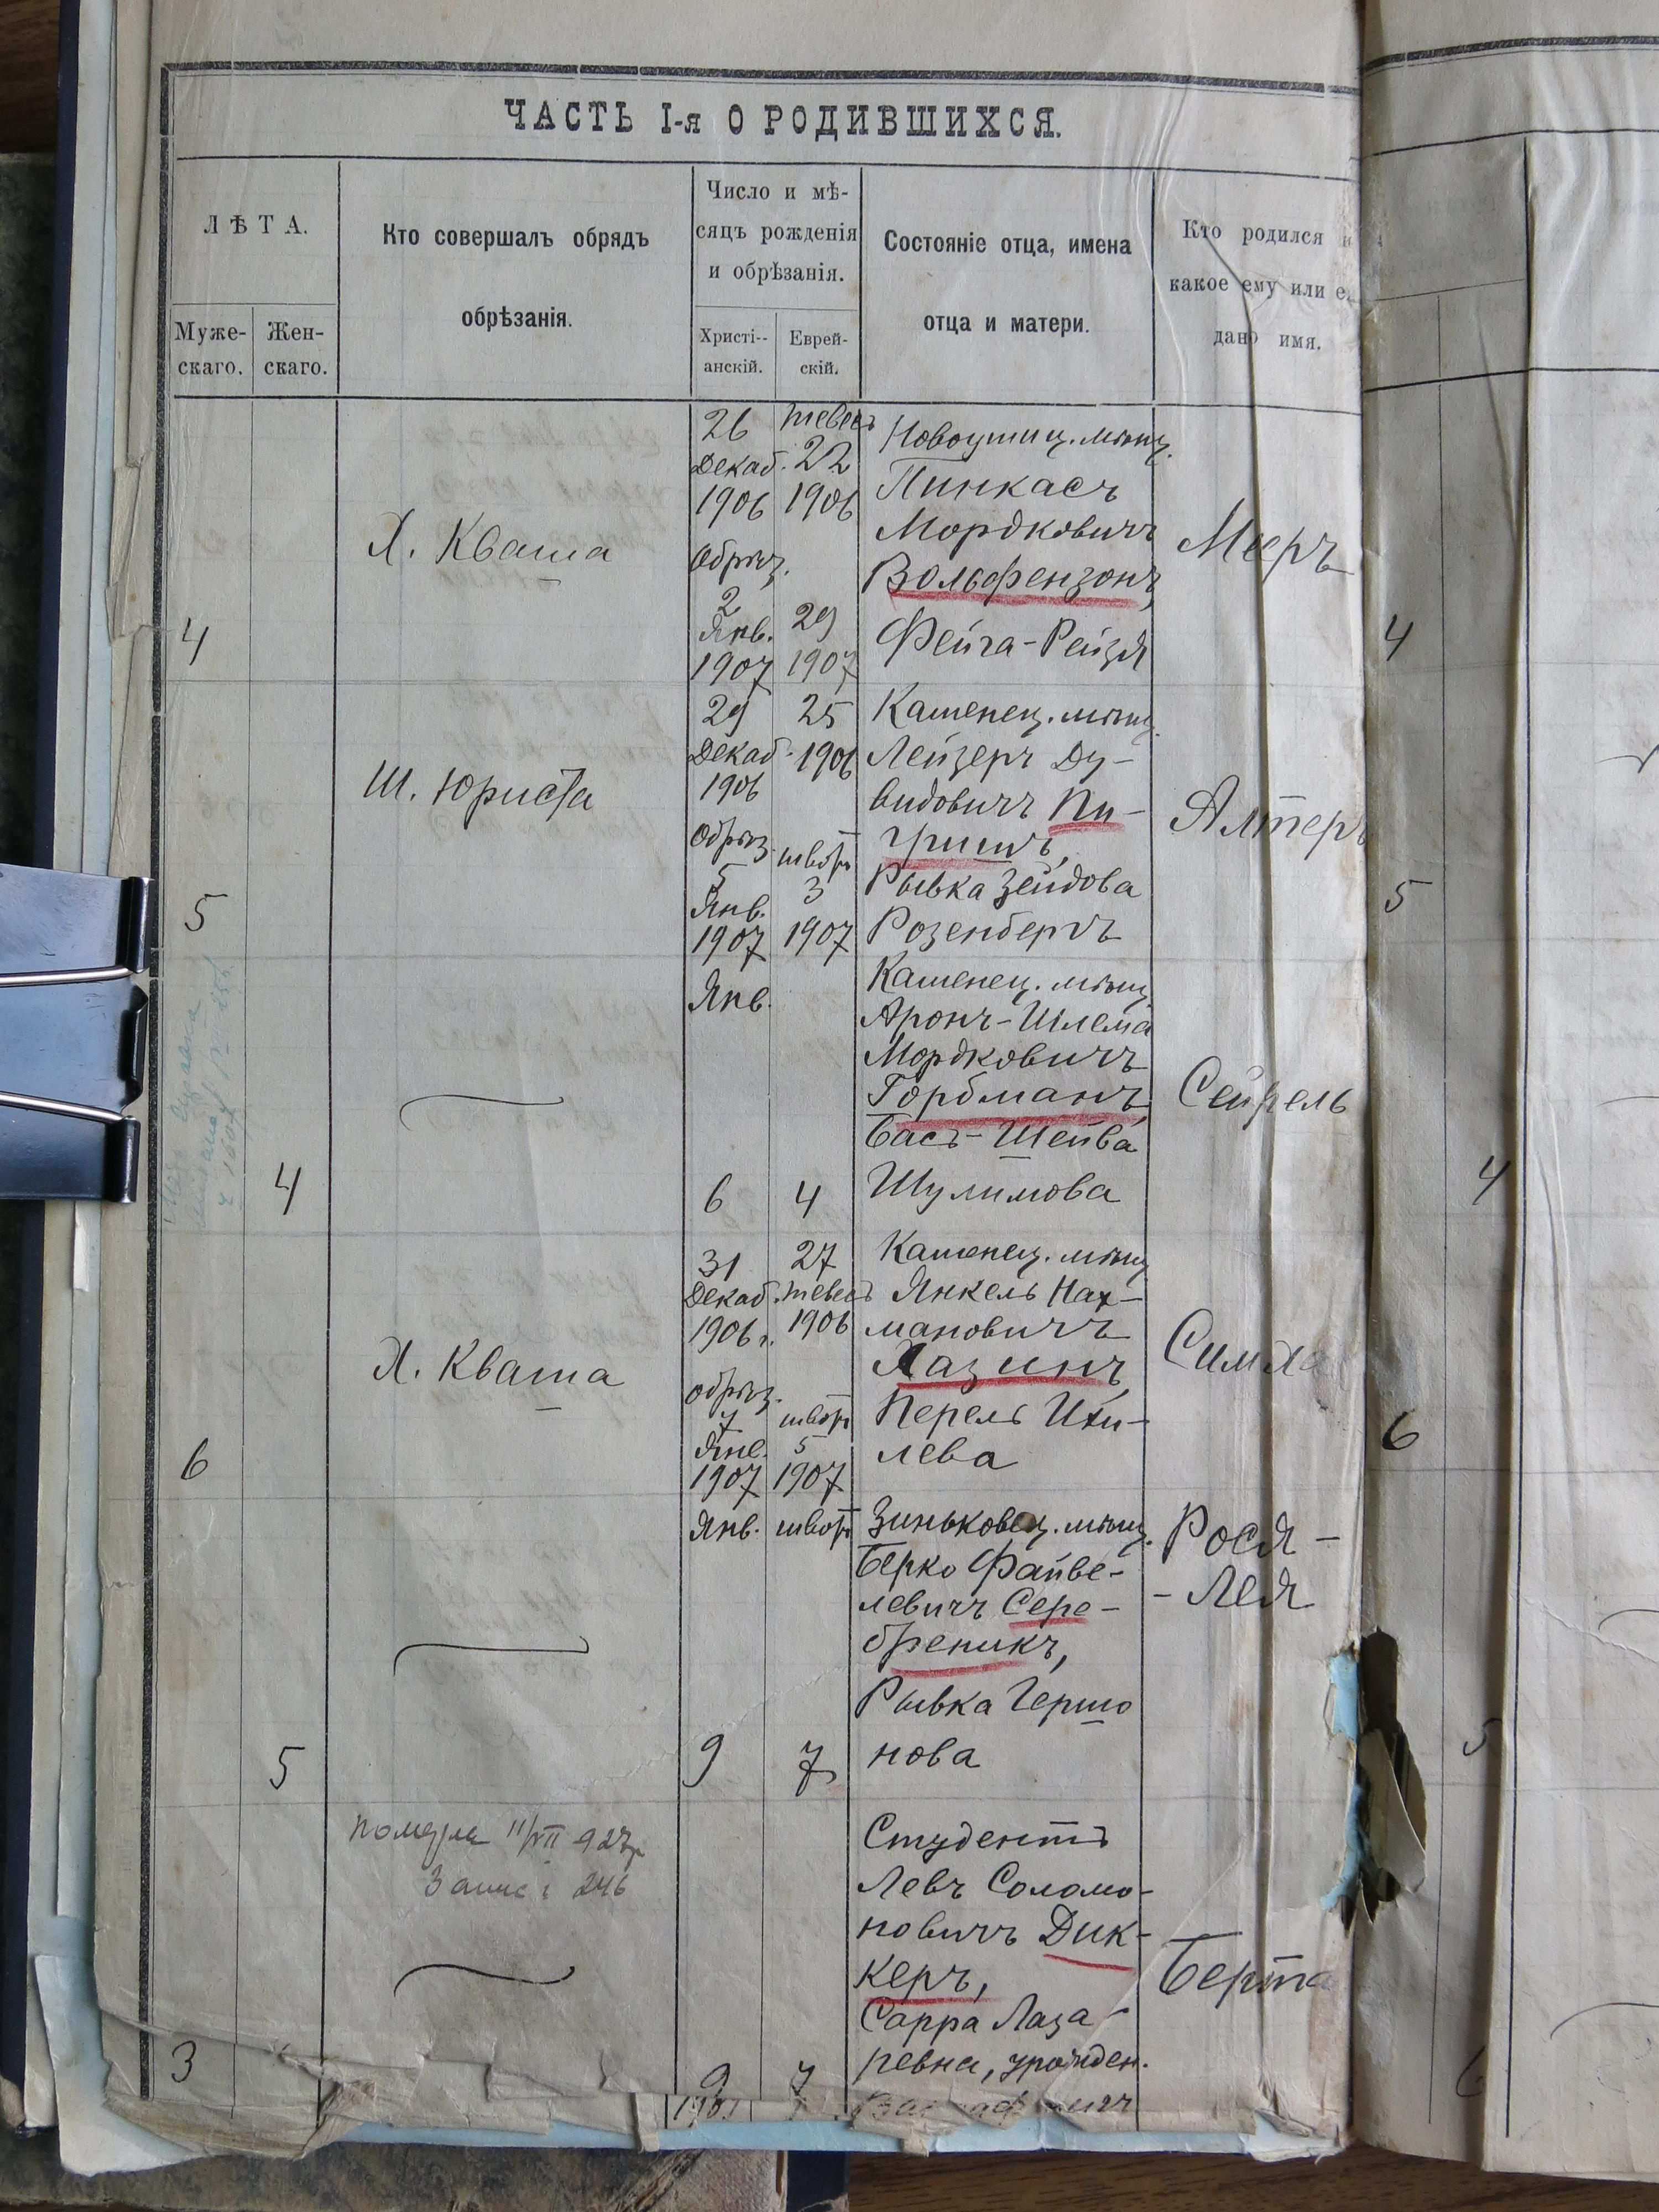 ЧАСТЬ I-я О РОДИВШИХСЯ.
ЛѢТА.
Муже-
скаго.
Жен-
скаго.
Кто совершалъ обрядъ
обрѣзанія.
Число и мѣ-
сяцъ рожденія
и обрѣзанія.
Христі--
анскій.
Еврей-
скій.
Состояніе отца, имена
отца и матери.
Кто родился и
какое ему или е
дано имя.
4
Х. Кваша
26
Декаб.
1906
Обрѣз.
2
Янв.
1907
тевесъ
22
1906
29
1907
Новоушиц. мѣщ.
Пинкасъ
Мордковичъ
Вольфензонъ,
Фейга-Рейзя
Меръ
4
5
Ш. Юриста
29
Декаб.
1906
Обрѣз.
5
Янв.
1907
25
1906
шватъ
3
1907
Каменец. мѣщ.
Лейзеръ Ду-
видовичъ Пи-
гришъ,
Рывка Зейдова
Розенбергъ
Алтеръ
5
4
Янв.
6
4
Каменец. мѣщ.
Аронъ-Шлема
Мордковичъ
Горбманъ,
Бась-Шейва
Шулимова
Сейрель
4
6
Х. Кваша
31
Декаб.
1906 г.
обрѣз.
7
Янв.
1907
27
тевесъ
1906
шватъ
5
1907
Каменец. мѣщ.
Янкель Нах-
мановичъ
Хазинъ,
Перель Ихи-
лева
Симха
6
5
Янв.
9
шватъ
7
Зиньковец. мѣщ.
Берко Файве-
левичъ Сере-
бреникъ,
Рывка Гершо
нова
Рося-
-Лея
5
Померла 11/VII 927р
Запис і 246
3
9
7
Студентъ
Левъ Соломо-
новичъ Дик-
керъ,
Сарра Лаза-
ревна, урожден.
Берта
6